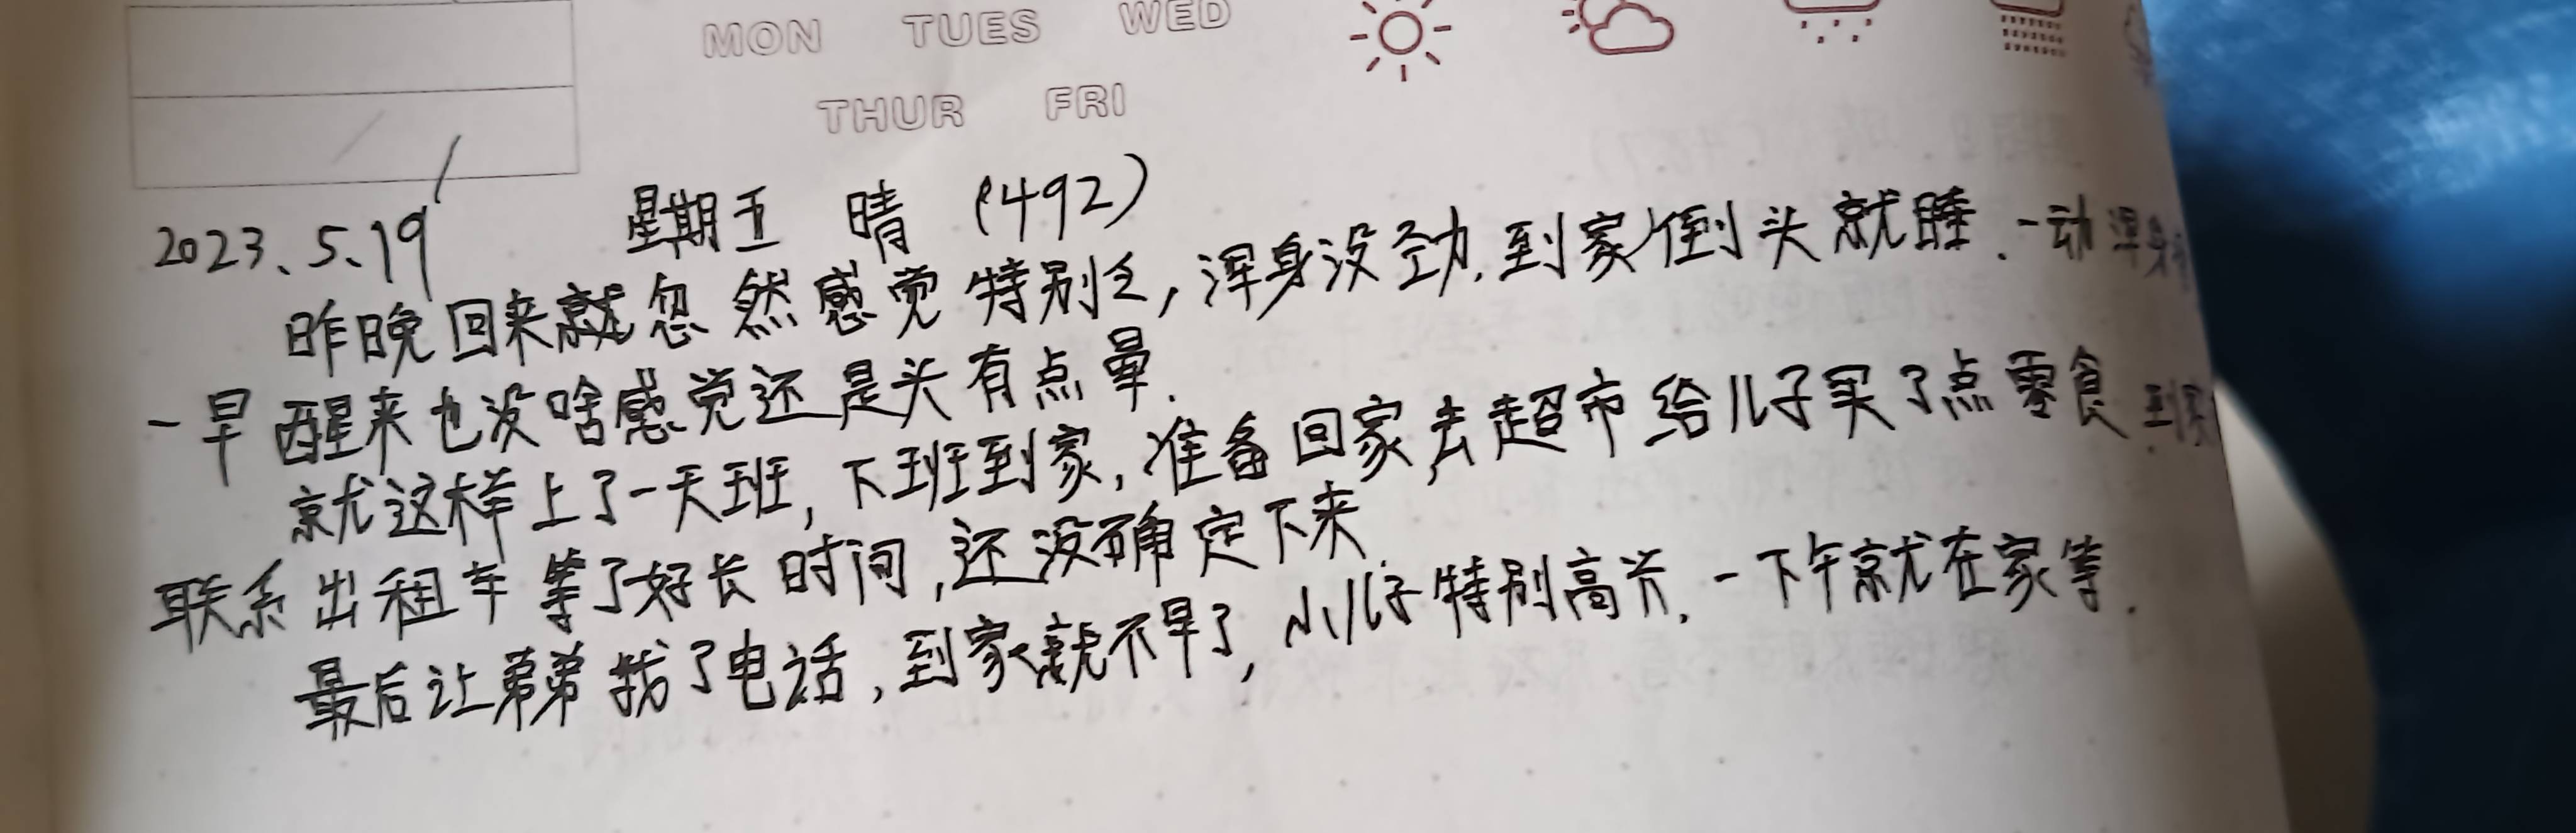 MON TUES WED
THUR FRI
2023、5、19 星期五 晴 (492)
昨晚回来就忽然感觉特别乏,浑身没劲.到家倒头就睡.一动浑身
一早醒来也没啥感觉还是头有点晕.
就这样上了一天班,下班到家,准备回家去超市给儿子买了点零食
联系出租车等了好长时间,还没确定下来.
最后让弟弟找了电话,到家就不早了,小儿子特别高兴.一下午就在家等.